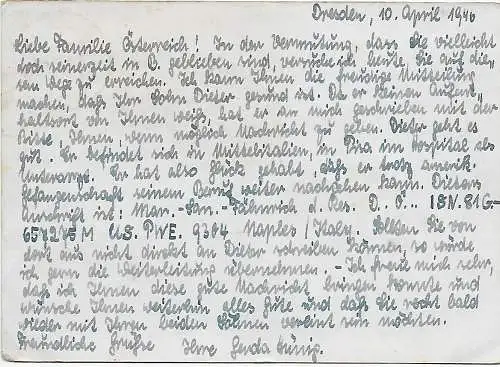 Dresden, 10. April 1946
Liebe Familie Österreich! In der Vermutung, dass Sie vielleicht
doch seinerzeit in B. geblieben sind, versuche ich heute, Sie auf die-
sem Wege zu erreichen. Ich kann Ihnen die freudige Mitteilung
machen, daß Ihr Sohn Dieter gesund ist. Da er keinen Aufent-
haltsort von Ihnen weiß, hat er an mich geschrieben mit der
Bitte, Ihnen, wenn möglich Nachricht zu geben. Dieter geht es
gut. Er befindet sich in Mittelitalien, in Pisa im Hospital als
Unterarzt. Er hat also Glück gehabt, daß er trotz amerik.
Gefangenschaft seinem Beruf weiter nachgehen kann. Dieters
Anschrift ist: Mar.-San.-Fähnrich d. Res. D. O... 18N. 81G-
657275M US. PWE. 9304 Naples / Italy. Sollten Sie von
dort aus nicht direkt an Dieter schreiben können, so würde
ich gern die Weiterleitung übernehmen. - Ich freue mich sehr,
daß ich Ihnen diese gute Nachricht bringen konnte und
wünsche Ihnen weiterhin alles Gute und daß Sie recht bald
wieder mit Ihren beiden Söhnen vereint sein möchten.
Freundliche Grüße Ihre Gerda